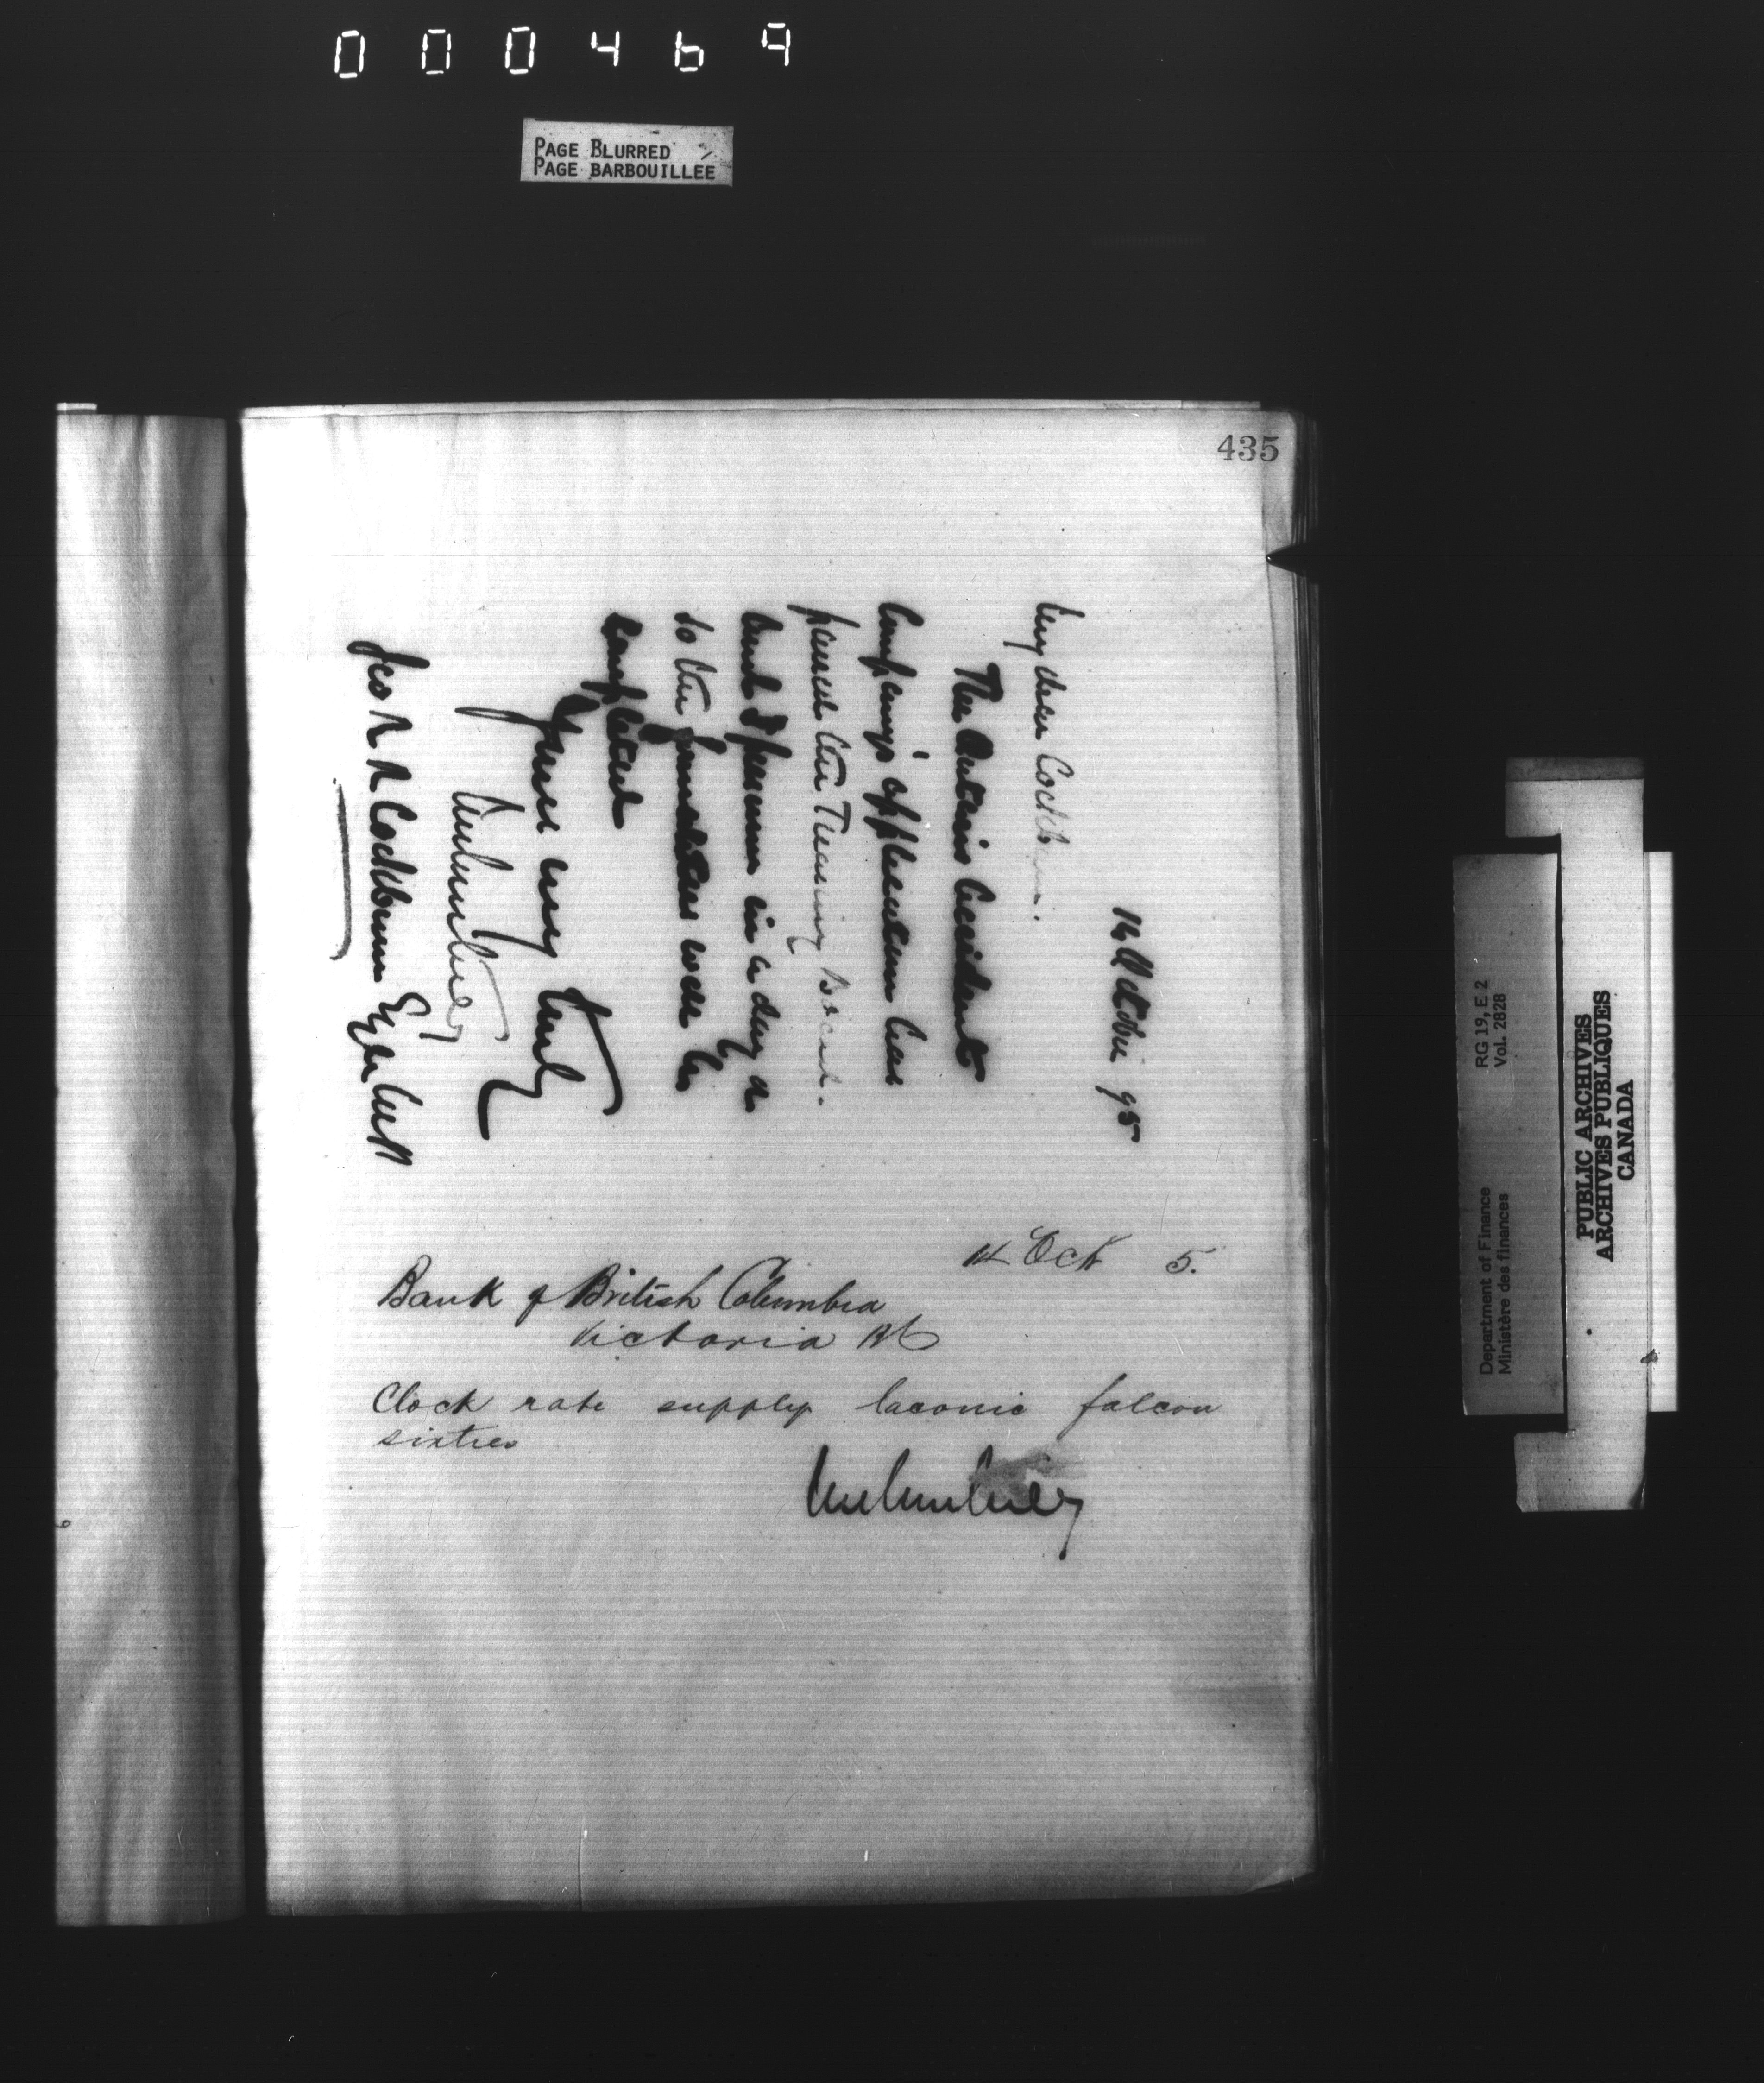 000469
PAGE BLURRED
PAGE BARBOUILLÉE
435
14 October 95
My dear Cockburn.
The Ontario Accident
Company's application has
passed the Treasury Board.
And I presume in a day or
so the formalities will be
completed
Yours very truly
Geo R R Cockburn Esqre
14 Oct 5.
Bank of British Columbia
Victoria BC
Clock rate supply laconic falcon
sixties
RG 19, E 2
Vol. 2828
Department of Finance
Ministère des finances
PUBLIC ARCHIVES
ARCHIVES PUBLIQUES
CANADA